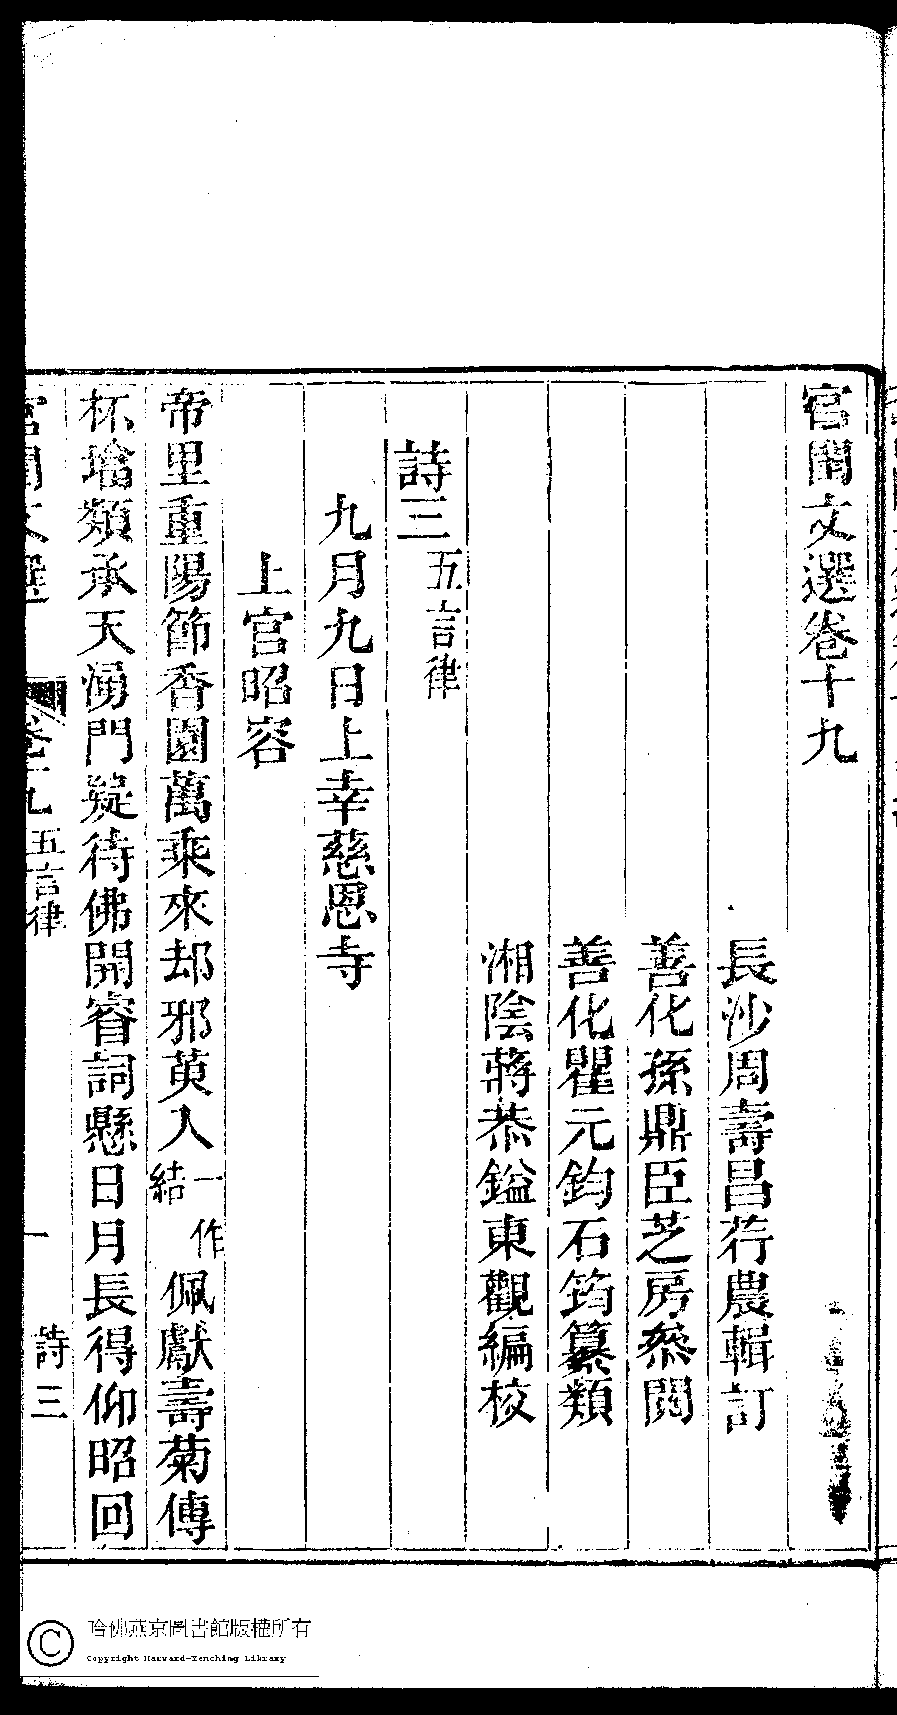 宫閨文選卷十九
長沙周壽昌荇農輯訂
善化孫鼎臣芝房叅閱
善化瞿元鈞石筠纂類
湘陰蔣恭鎰東觀編校
詩三 五言律
九月九日上幸慈恩寺
上官昭容
帝里重陽節香園萬乘來却邪萸入一作結佩獻壽菊傳
杯墖類承天湧門疑待佛開睿詞懸日月長得仰昭回
宫閨文選 卷十九 五言律 一 詩三
哈佛燕京圖書館版權所有
Copyright Harvard-Yenching Library